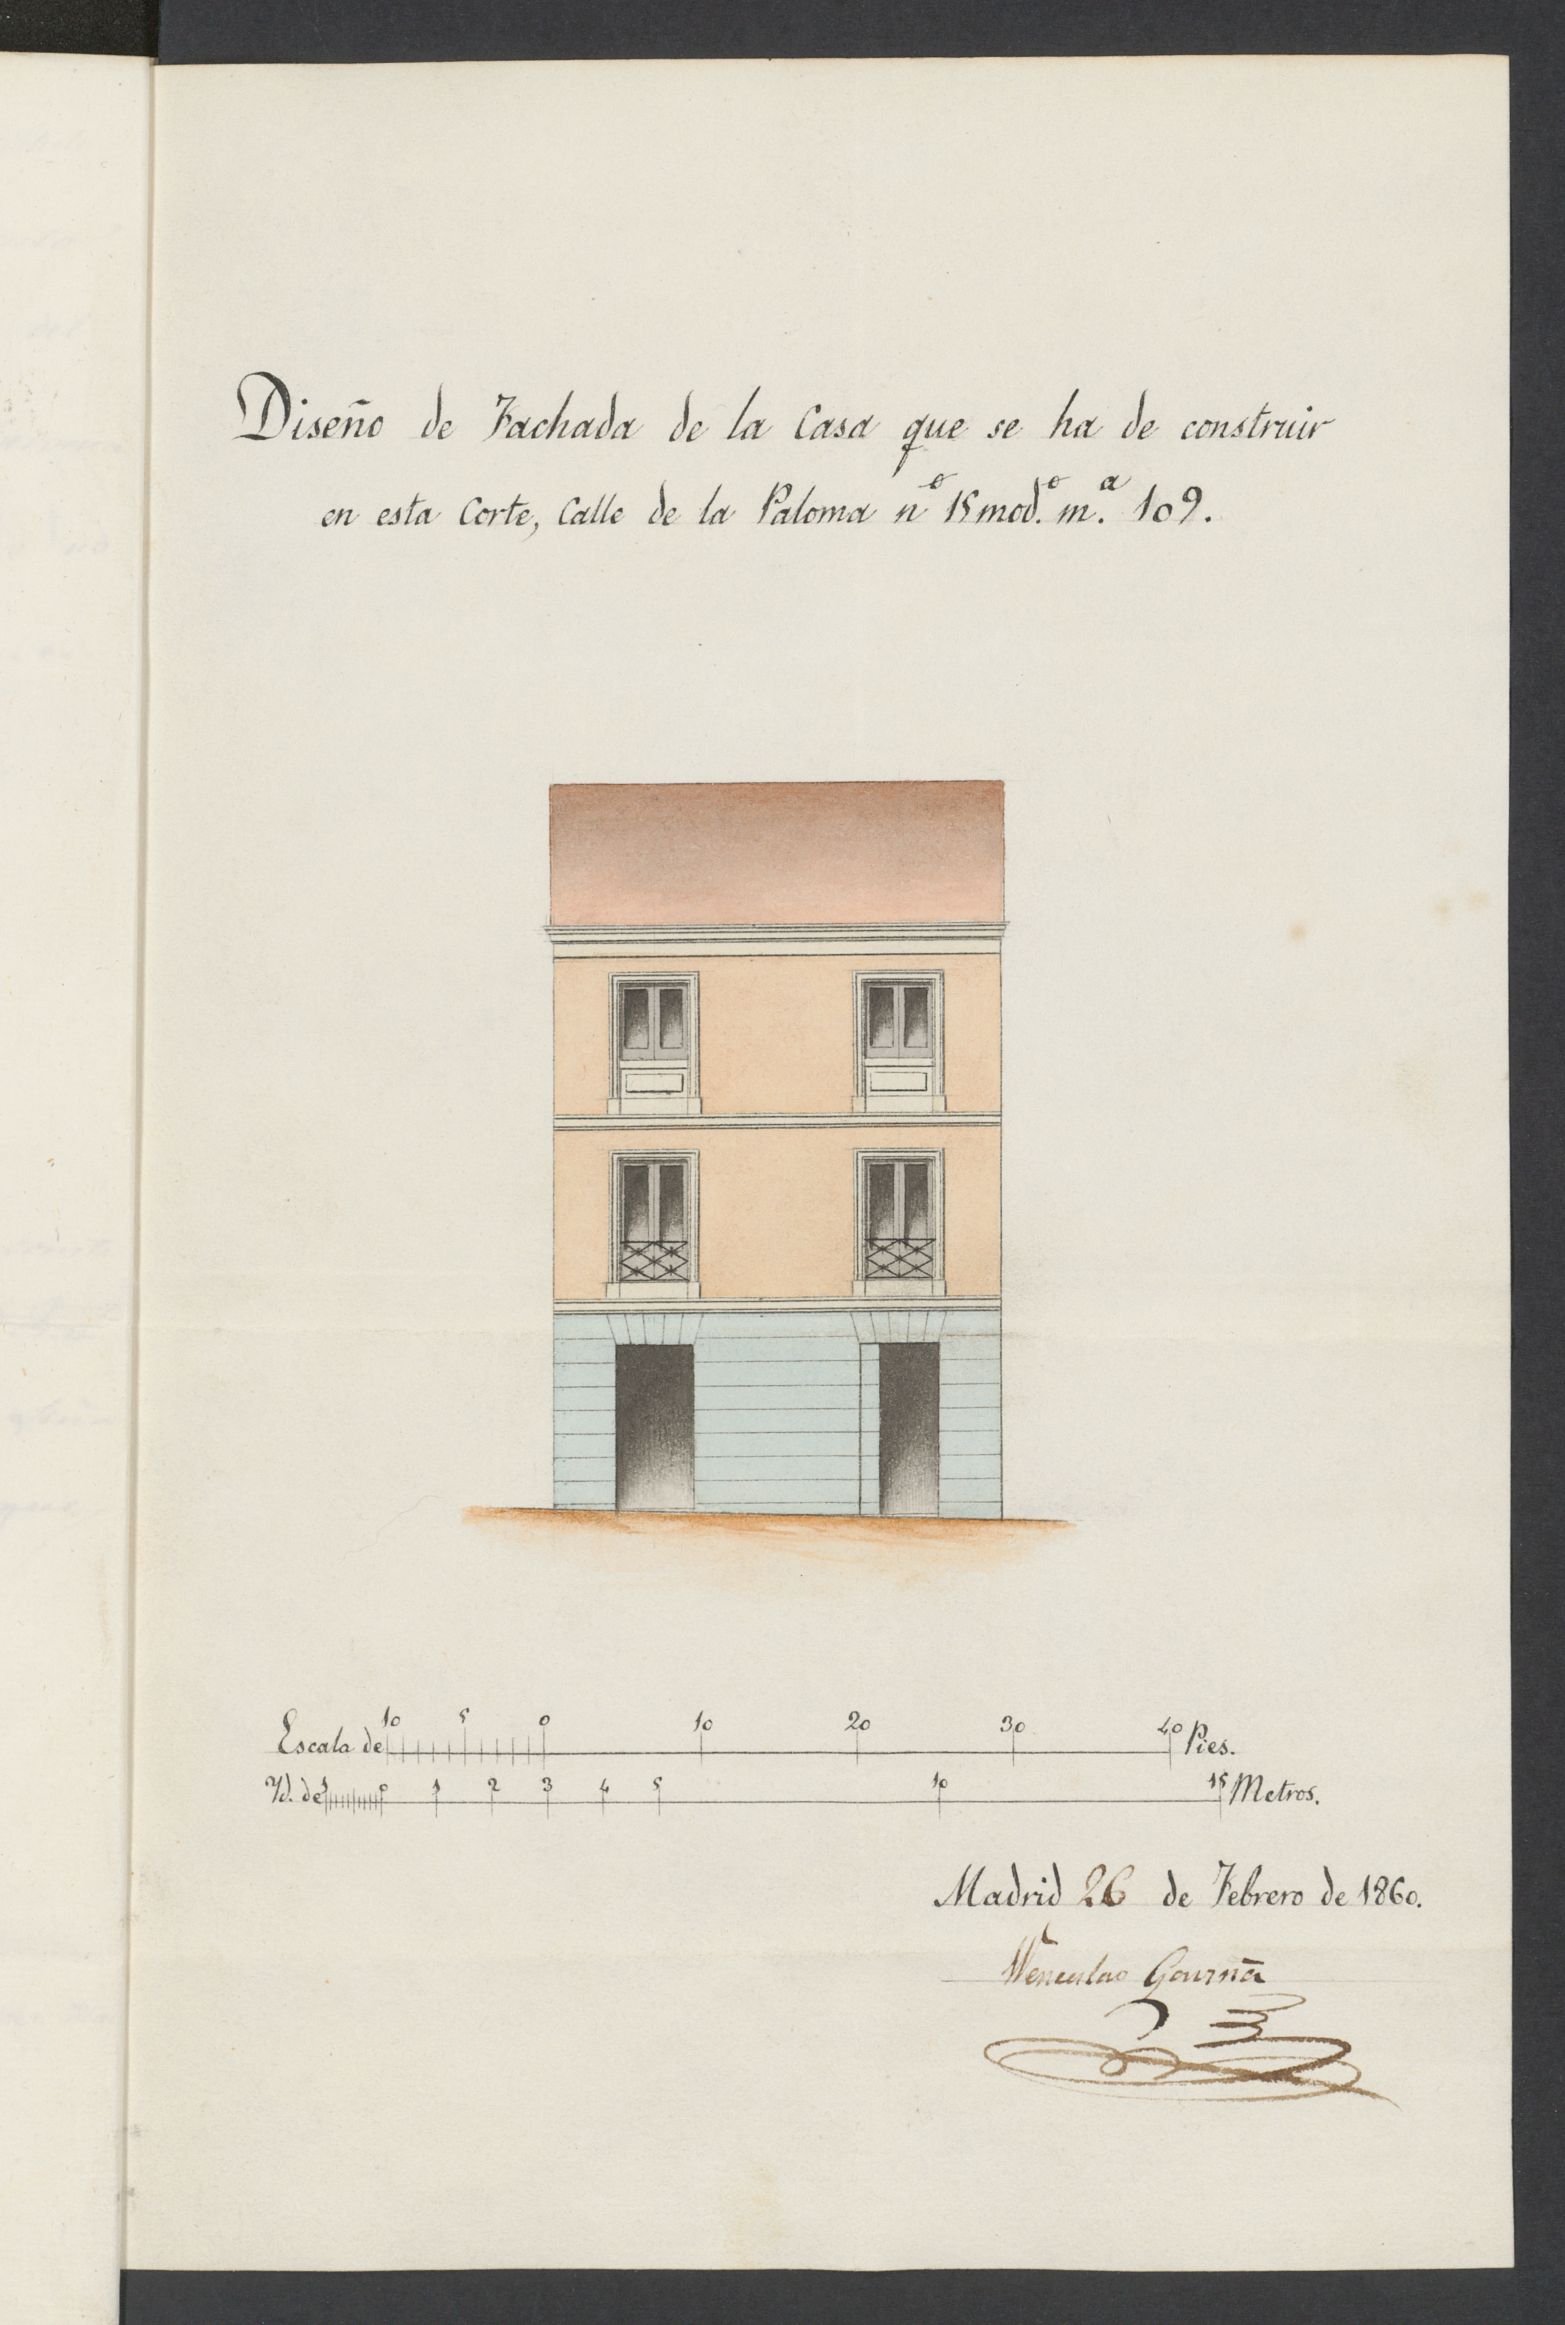 Diseño de Fachada de la Casa que se ha de construir
en esta Corte, Calle de la Paloma nº 15 mod.º m.ª 109.
Escala de 10 5 0 10 20 30 40 Pies.
Yd. de 1 0 1 2 3 4 5 10 15 Metros.
Madrid 26 de Febrero de 1860.
Wenceslao Gaviña